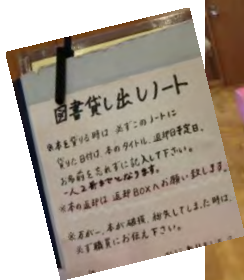 図書貸し出しノート
※本を借りる時は 必ずこのノートに
借りた日付は、本のタイトル、返却予定日、
お名前を忘れずに記入して下さい。
一人2冊までとなります。
※本の返却は 返却BOXへお願い致します。
※万が一、本が破損、紛失してしまった時は、
必ず職員にお伝え下さい。